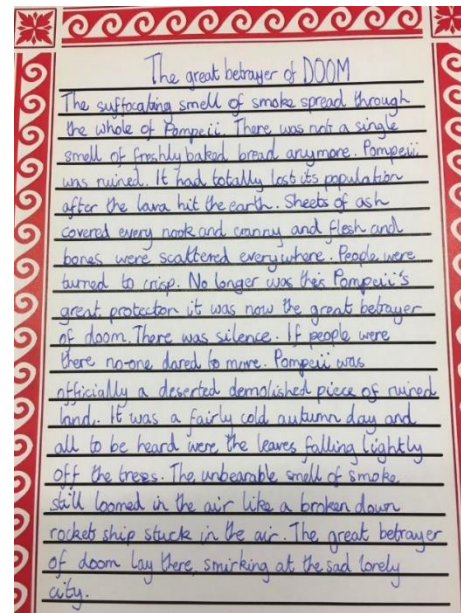 The great betrayer of DOOM
The suffocating smell of smoke spread through
the whole of Pompeii. There was not a single
smell of freshly baked bread anymore. Pompeii
was ruined. It had totally lost its population
after the lava hit the earth. Sheets of ash
covered every nook and cranny and flesh and
bones were scattered everywhere. People were
turned to crisp. No longer was this Pompeii's
great protector it was now the great betrayer
of doom. There was silence. If people were
there no-one dared to move. Pompeii was
officially a deserted demolished piece of ruined
land,. It was a fairly cold autumn day and
all to be heard were the leaves falling lightly
off the trees. The unbearable smell of smoke
still loomed in the air like a broken down
rockets ship stuck in the air. The great betrayer
of doom lay there, smirking at the sad lonely
city.